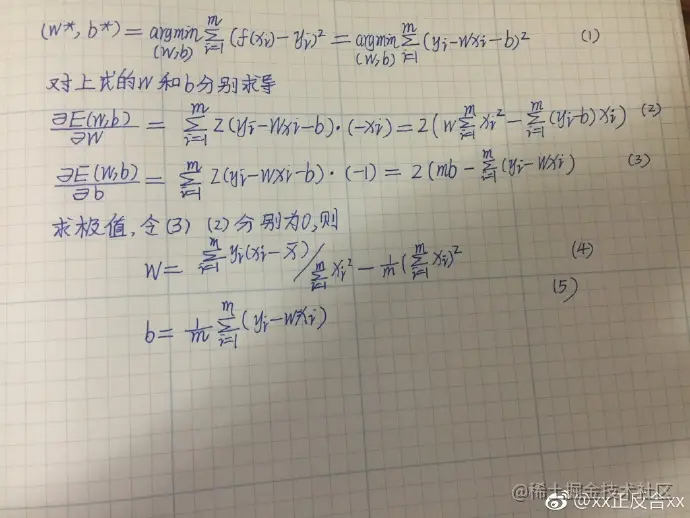 (w*, b*) = argmin_(w,b) Σ_{i=1}^{m} (f(xi) − yi)² = argmin_(w,b) Σ_{i=1}^{m} (yi − wxi − b)² (1)
对上式的w和b分别求导
∂E(w,b)/∂w = Σ_{i=1}^{m} 2(yi − wxi − b)·(−xi) = 2(w Σ_{i=1}^{m} xi² − Σ_{i=1}^{m} (yi − b)xi) (2)
∂E(w,b)/∂b = Σ_{i=1}^{m} 2(yi − wxi − b)·(−1) = 2(mb − Σ_{i=1}^{m} (yi − wxi) (3)
求极值,令(3) (2)分别为0,则
w = Σ_{i=1}^{m} yi(xi − x̄) / Σ_{i=1}^{m} xi² − 1/m (Σ_{i=1}^{m} xi)² (4)
(5)
b = 1/m Σ_{i=1}^{m} (yi − wxi)
@稀土掘金技术社区
@xx正反合xx